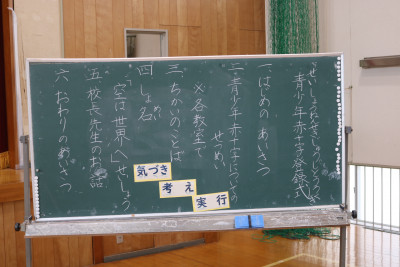 せいしょうねんせきじゅうじとうろくしき
青少年赤十字登録式
一 はじめの あいさつ
二 青少年赤十字についての
せつめい
※各教室で
三 ちかいのことば
四 しょ名
めい
「空は世界へ」せいしょう
五 校長先生のお話
六 おわりの あいさつ
気づき
考え
実行